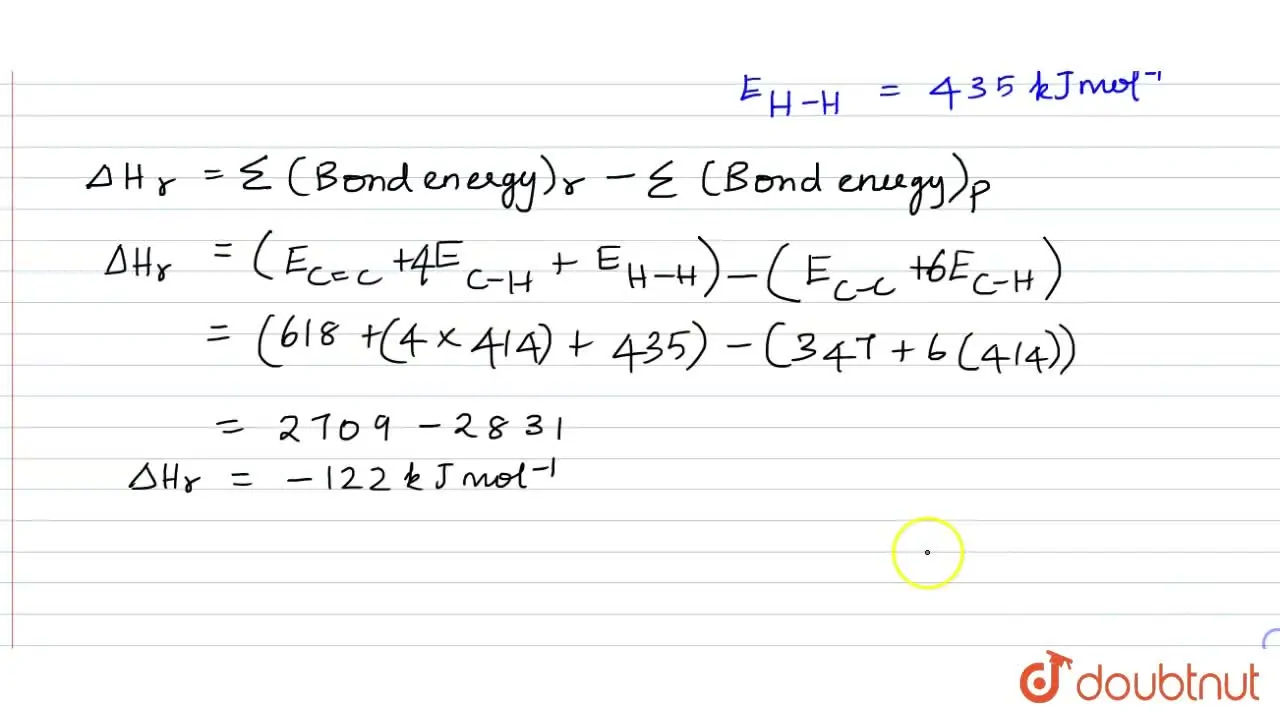 E H-H = 435 kJ mol⁻¹
ΔHr = Σ (Bond energy)r - Σ (Bond energy)p
ΔHr = (E C=C + 4E C-H + E H-H) - (E C-C + 6E C-H)
= (618 + (4 × 414) + 435) - (347 + 6(414))
= 2709 - 2831
ΔHr = -122 kJ mol⁻¹
doubtnut